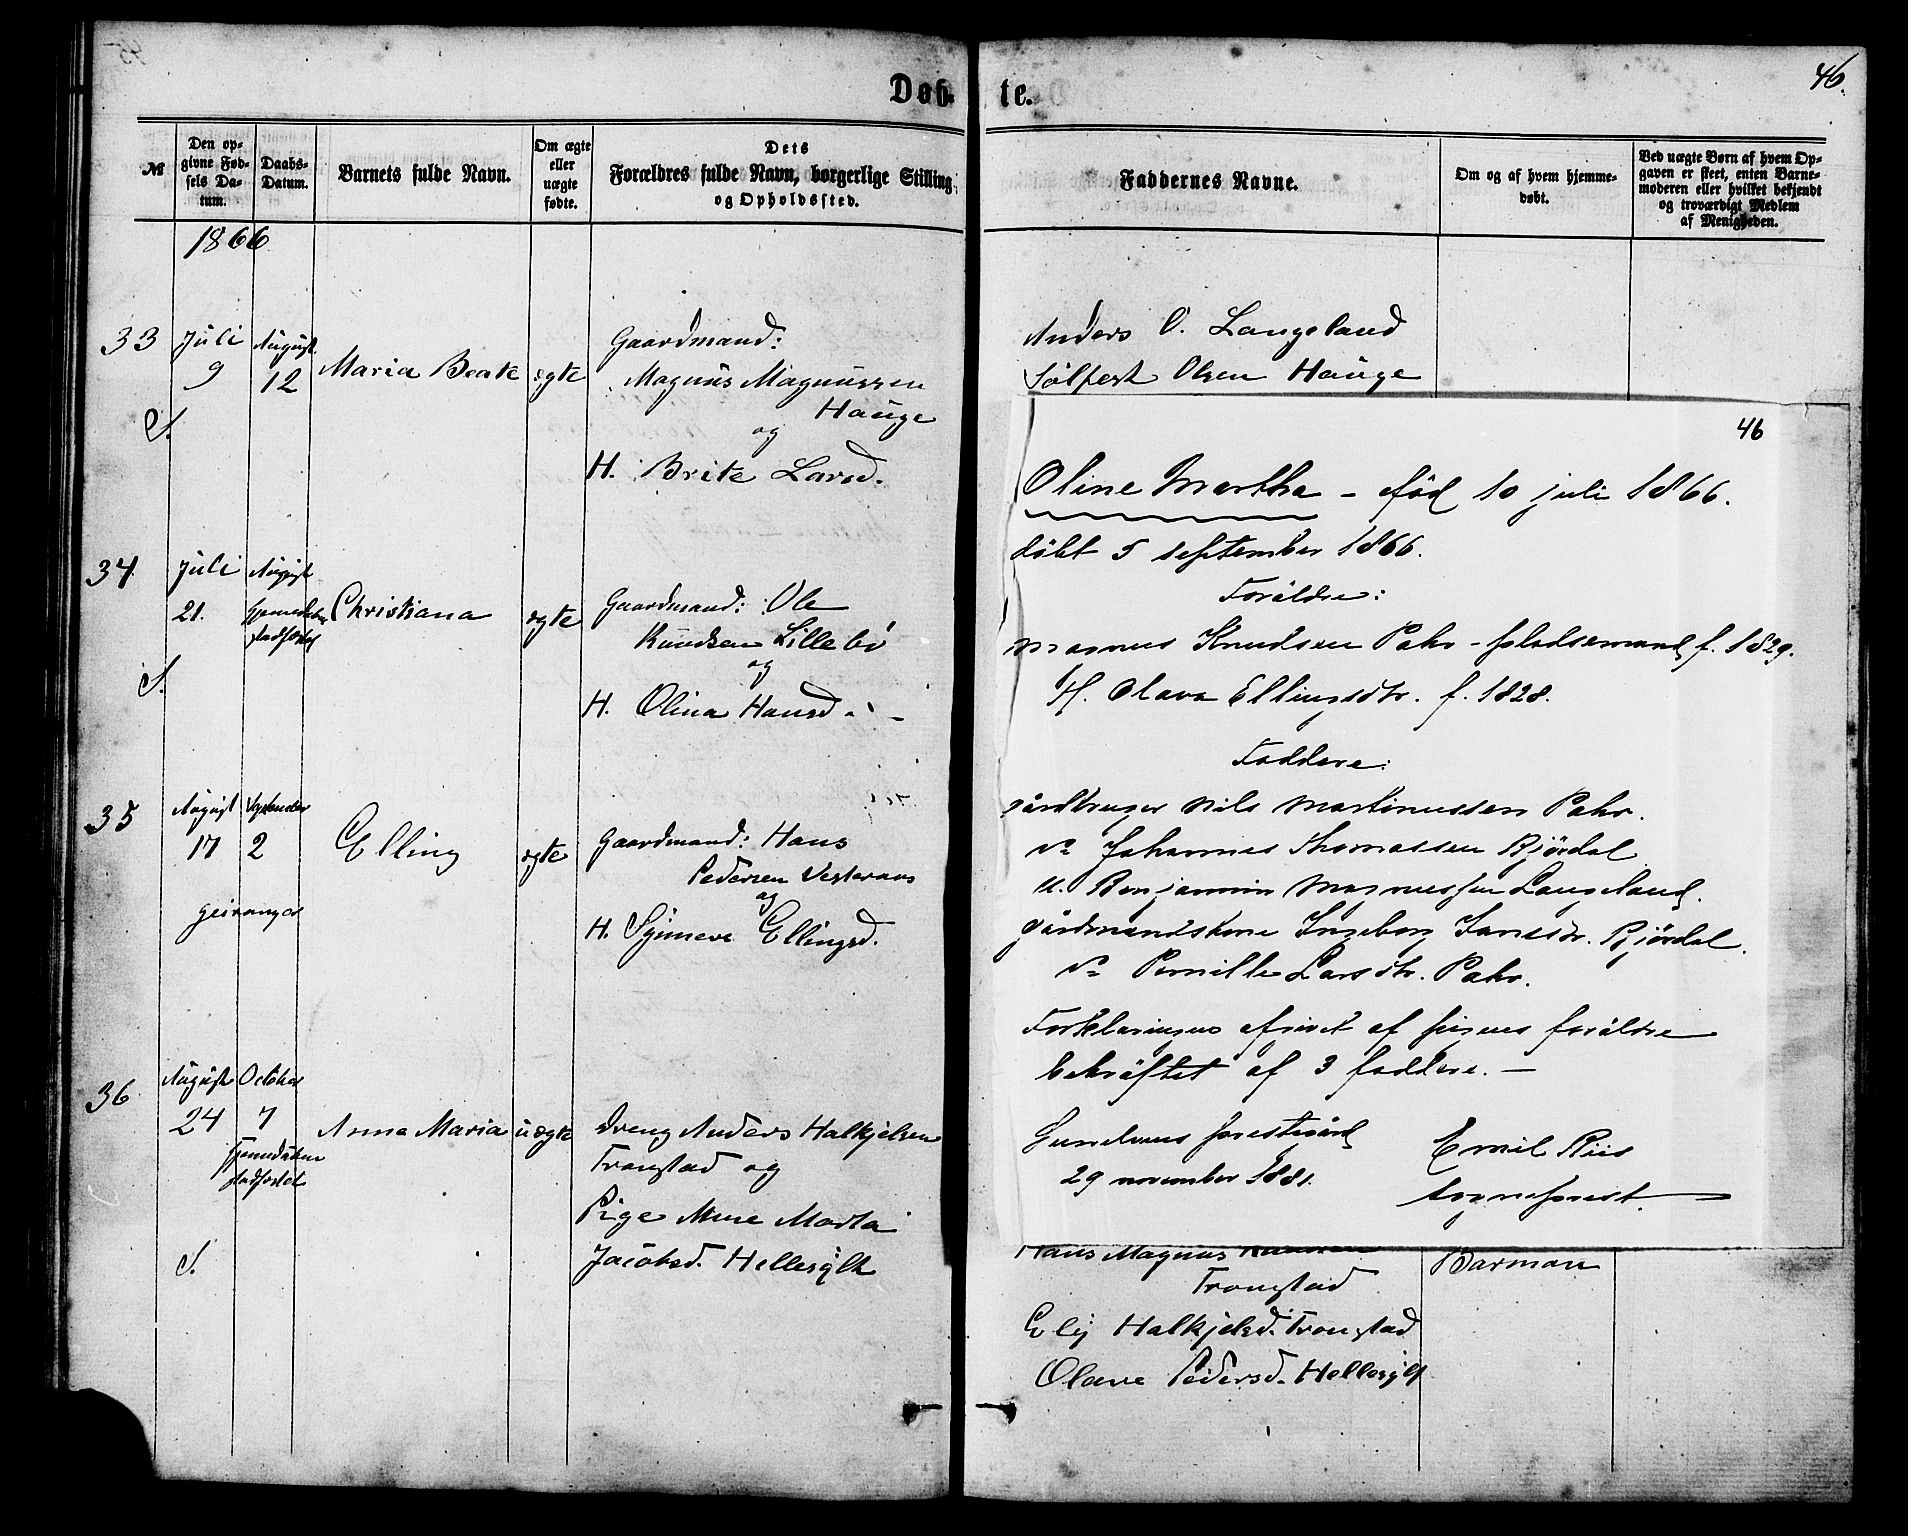 Døb-
te.
46.
№
Den op-
givne Fød-
sels Da-
tum.
Daabs-
Datum.
Barnets fulde Navn.
Om ægte
eller
uægte
fødte.
Dets
Forældres fulde Navn, borgerlige Stilling
og Opholdssted.
Faddernes Navne.
Om og af hvem hjemme-
døbt.
Ved uægte Børn af hvem Op-
gaven er skeet, enten Barne-
moderen eller hvilket bekjendt
og troværdigt Medlem
af Menigheden.
1866
33
Juli
9
August
12
S.
Maria Beate
ægte
Gaardmand:
Magnus Magnussen
Hauge
og
H. Brite Larsd.
Anders O. Langeland
Sølfest Olsen Hauge
34
Juli
21.
August
stadfæstet
S.
Christiana
ægte
Gaardmand: Ole
Knudsen Lillebø
og
H. Olina Hansd.
35
August
17
September
2
Geiranger
Elling
ægte
Gaardmand: Hans
Pedersen Vesteraas
og
H. Synneve Ellingsd.
36
August
24
October
7
Hjemmedaaben
stadfæstet
S.
Anne Maria
uægte
Dreng Anders Halkjelsen
Tronstad og
Pige Marta
Jacobsd. Hellesylt
46
Oline Martha - fød 10 juli 1866.
døbt 5 september 1866.
Forældre:
Magnus Knudsen - pladsemand f. 1829.
H. Olava Ellingsdtr. f. 1828.
Faddere:
gårdbruger Nils Martinussen
Johannes Thomassen Bjørdal
U. Benjamin Magnussen Langeland.
gårdmandskone Ingeborg Bjørdal.
Pernille Larsdtr.
Forklaringen afgivet af pigens forældre
bekræftet af 3 faddere. -
Sunelvens prestegård
29 november 1881.
Emil Riis
sogneprest.
Hans Magnus
Tronstad
Elij Halkjelsd. Tronstad
Olave Pedersd. Hellesylt